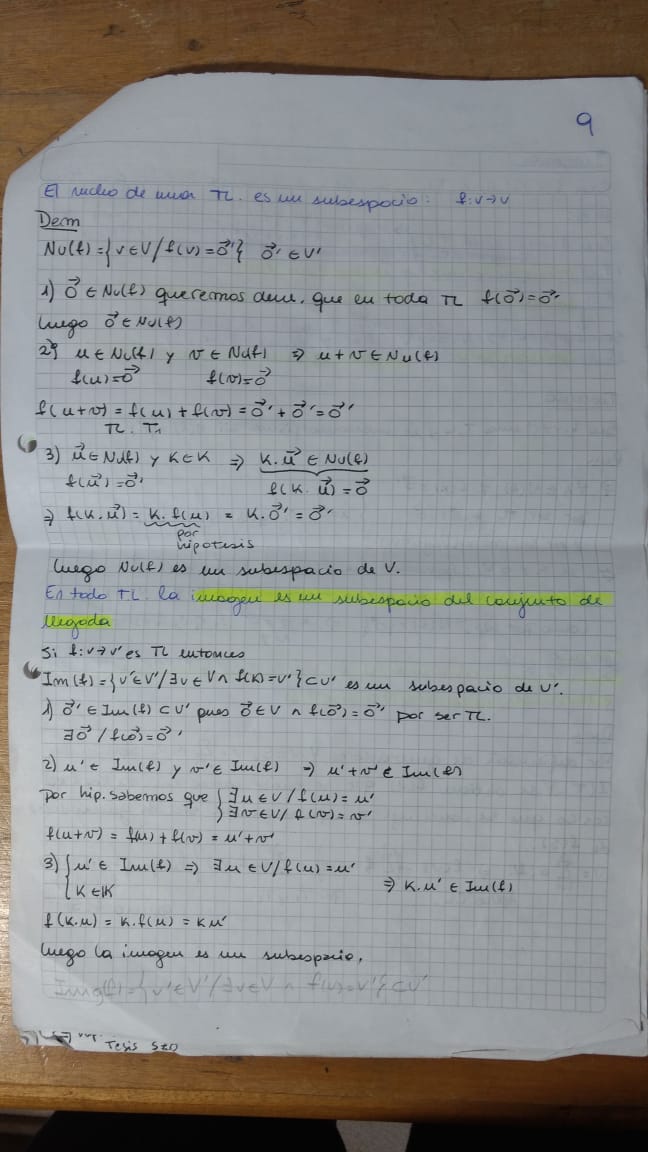 9
El nucleo de una TL. es un subespacio: f: v→v
Dem
Nu(f) = {v∈V / f(v) = 0⃗'} 0⃗' ∈ V'
1) 0⃗ ∈ Nu(f) queremos dem. que en toda TL f(0⃗) = 0⃗'
Luego 0⃗ ∈ Nu(f)
2) u ∈ Nu(f) y v ∈ Nu(f) ⇒ u + v ∈ Nu(f)
f(u) = 0⃗ f(v) = 0⃗
f(u+v) = f(u) + f(v) = 0⃗' + 0⃗' = 0⃗'
TL. T1
3) u⃗ ∈ Nu(f) y K ∈ K ⇒ K.u⃗ ∈ Nu(f)
f(u⃗) = 0⃗' f(K. u⃗) = 0⃗
⇒ f(K.u⃗) = K. f(u) = K.0⃗' = 0⃗'
por
hipotesis
Luego Nu(f) es un subespacio de V.
En todo TL. la imagen es un subespacio del conjunto de
llegada
Si f: v→v' es TL entonces
Im(f) = {v'∈V' / ∃v∈V ∧ f(x) = v'} ⊂ V' es un subespacio de V'.
1) 0⃗' ∈ Im(f) ⊂ V' pues 0⃗ ∈ V ∧ f(0⃗) = 0⃗' por ser TL.
∃0⃗ / f(0⃗) = 0⃗'
2) u' ∈ Im(f) y v' ∈ Im(f) ⇒ u' + v' ∈ Im(f)
por hip. sabemos que { ∃u ∈ V / f(u) = u'
∃v ∈ V / f(v) = v'
f(u+v) = f(u) + f(v) = u' + v'
3) { u' ∈ Im(f) ⇒ ∃u ∈ V / f(u) = u'
K ∈ K ⇒ K.u' ∈ Im(f)
f(K.u) = K.f(u) = Ku'
Luego la imagen es un subespacio.
Img(f) = {v'∈V' / ∃v∈V ∧ f(v) = V'} ⊂ V'
Tesis